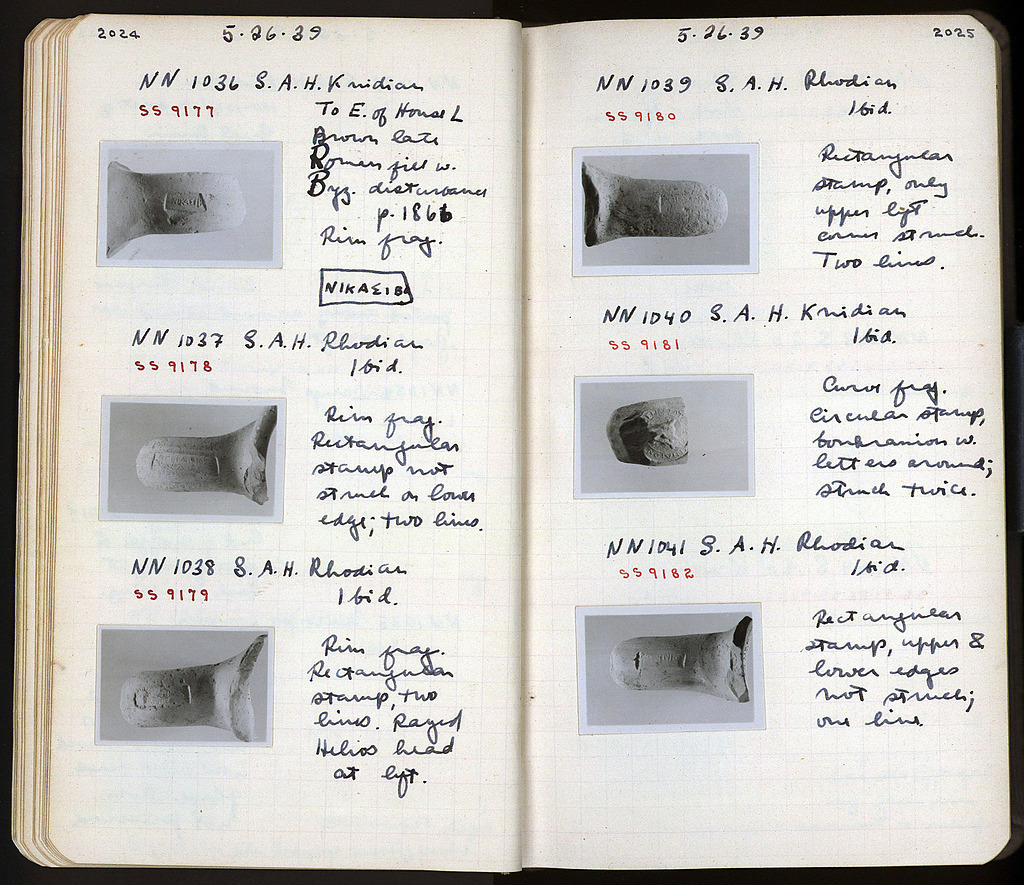 2024
5·26·39
NN 1036 S. A. H. Knidian
SS 9177
To E. of House L
Brown late
Roman fill w.
Byz. disturbance
p. 1866
Rim frag.
ΝΙΚΑΣΙΒ
NN 1037 S. A. H. Rhodian
SS 9178
Ibid.
Rim frag.
Rectangular
stamp not
struck on lower
edge; two lines.
NN 1038 S. A. H. Rhodian
SS 9179
Ibid.
Rim frag.
Rectangular
stamp, two
lines. Rayed
Helios head
at left.
5·26·39
2025
NN 1039 S. A. H. Rhodian
SS 9180
Ibid.
Rectangular
stamp, only
upper left
corner struck.
Two lines.
NN 1040 S. A. H. Knidian
SS 9181
Ibid.
Curve frag.
Circular stamp,
boukranion w.
letters around;
struck twice.
NN 1041 S. A. H. Rhodian
SS 9182
Ibid.
Rectangular
stamp, upper &
lower edges
not struck;
one line.